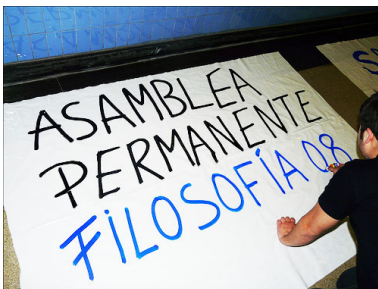 ASAMBLEA
PERMANENTE
FILOSOFÍA 08